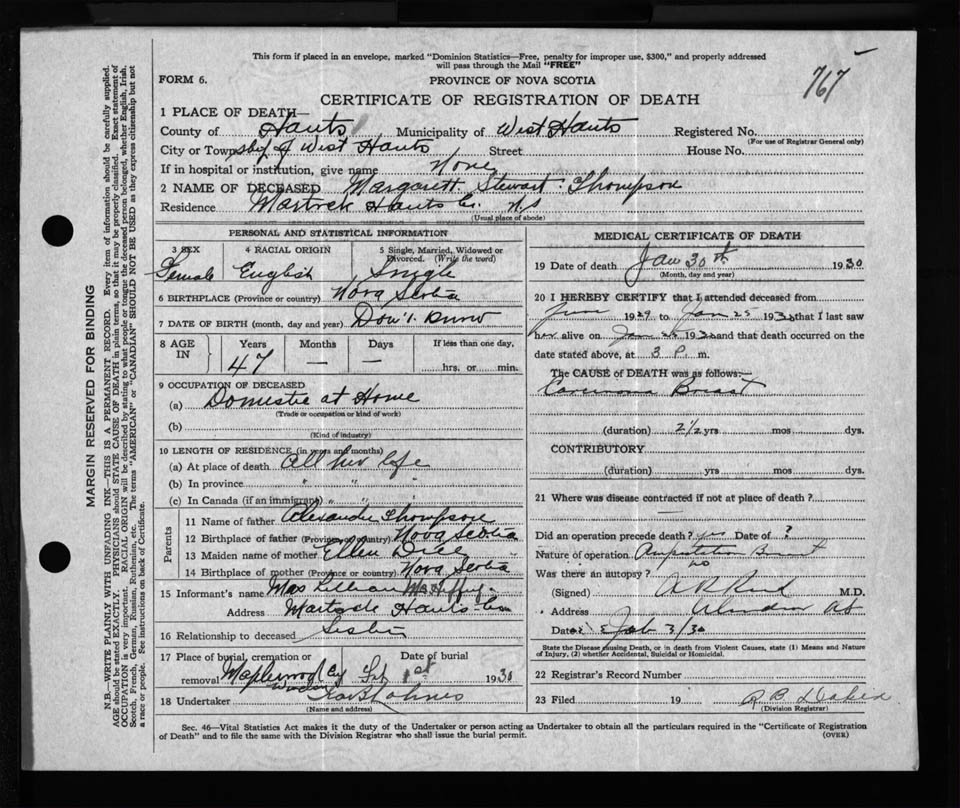 This form if placed in an envelope, marked "Dominion Statistics—Free, penalty for improper use, $300," and properly addressed
will pass through the Mail "FREE"
767
FORM 6.
PROVINCE OF NOVA SCOTIA
CERTIFICATE OF REGISTRATION OF DEATH
1 PLACE OF DEATH—
County of Hants, Municipality of West Hants Registered No.
(For use of Registrar General only)
City or Township of West Hants Street House No.
If in hospital or institution, give name None
2 NAME OF DECEASED Margarett Stewart Thompson
Residence Martock Hants Co. N.S
(Usual place of abode)
PERSONAL AND STATISTICAL INFORMATION
3 SEX 4 RACIAL ORIGIN 5 Single, Married, Widowed or Divorced. (Write the word)
Female English Single
6 BIRTHPLACE (Province or country) Nova Scotia
7 DATE OF BIRTH (month, day and year) Don't know
8 AGE IN Years Months Days If less than one day,
47 — — hrs. or min.
9 OCCUPATION OF DECEASED
(a) Domestic at Home
(Trade or occupation or kind of work)
(b)
(Kind of industry)
10 LENGTH OF RESIDENCE (in years and months)
(a) At place of death all her life
(b) In province " " "
(c) In Canada (if an immigrant) " " "
Parents
11 Name of father Alexander Thompson
12 Birthplace of father (Province or country) Nova Scotia
13 Maiden name of mother Ellen
14 Birthplace of mother (Province or country) Nova Scotia
15 Informant's name Mrs Lillian
Address Martock Hants Co
16 Relationship to deceased Sister
17 Place of burial, cremation or removal Date of burial
Maplewood Cy Feb 1st 1930
Windsor
18 Undertaker
(Name and address)
MEDICAL CERTIFICATE OF DEATH
19 Date of death Jan 30th 1930
(Month, day and year)
20 I HEREBY CERTIFY that I attended deceased from
June 1929 to Jan 25 1930 that I last saw
her alive on Jan 25 1930 and that death occurred on the
date stated above, at 3 P. m.
The CAUSE OF DEATH was as follows:—
Carcinoma Breast
(duration) 2½ yrs mos dys.
CONTRIBUTORY
(duration) yrs mos dys.
21 Where was disease contracted if not at place of death?
Did an operation precede death? yes Date of ?
Nature of operation Amputation Breast
Was there an autopsy? no
(Signed) A R Reid M.D.
Address
Date Feb 3/30
State the Disease causing Death, or in death from Violent Causes, state (1) Means and Nature
of Injury, (2) whether Accidental, Suicidal or Homicidal.
22 Registrar's Record Number
23 Filed 19
(Division Registrar)
Sec. 46—Vital Statistics Act makes it the duty of the Undertaker or person acting as Undertaker to obtain all the particulars required in the "Certificate of Registration
of Death" and to file the same with the Division Registrar who shall issue the burial permit. (OVER)
MARGIN RESERVED FOR BINDING
N.B.—WRITE PLAINLY WITH UNFADING INK—THIS IS A PERMANENT RECORD. Every item of information should be carefully supplied.
AGE should be stated EXACTLY. PHYSICIANS should STATE CAUSE OF DEATH in plain terms, so that it may be properly classified. Exact statement of
OCCUPATION is very important. RACIAL ORIGIN will be described by stating to what people or tongue the deceased person belonged, whether English, Irish,
Scotch, French, German, Russian, Ruthenian, etc. The terms "AMERICAN" or "CANADIAN" SHOULD NOT BE USED as they express citizenship but not
a race or people. See instructions on back of Certificate.